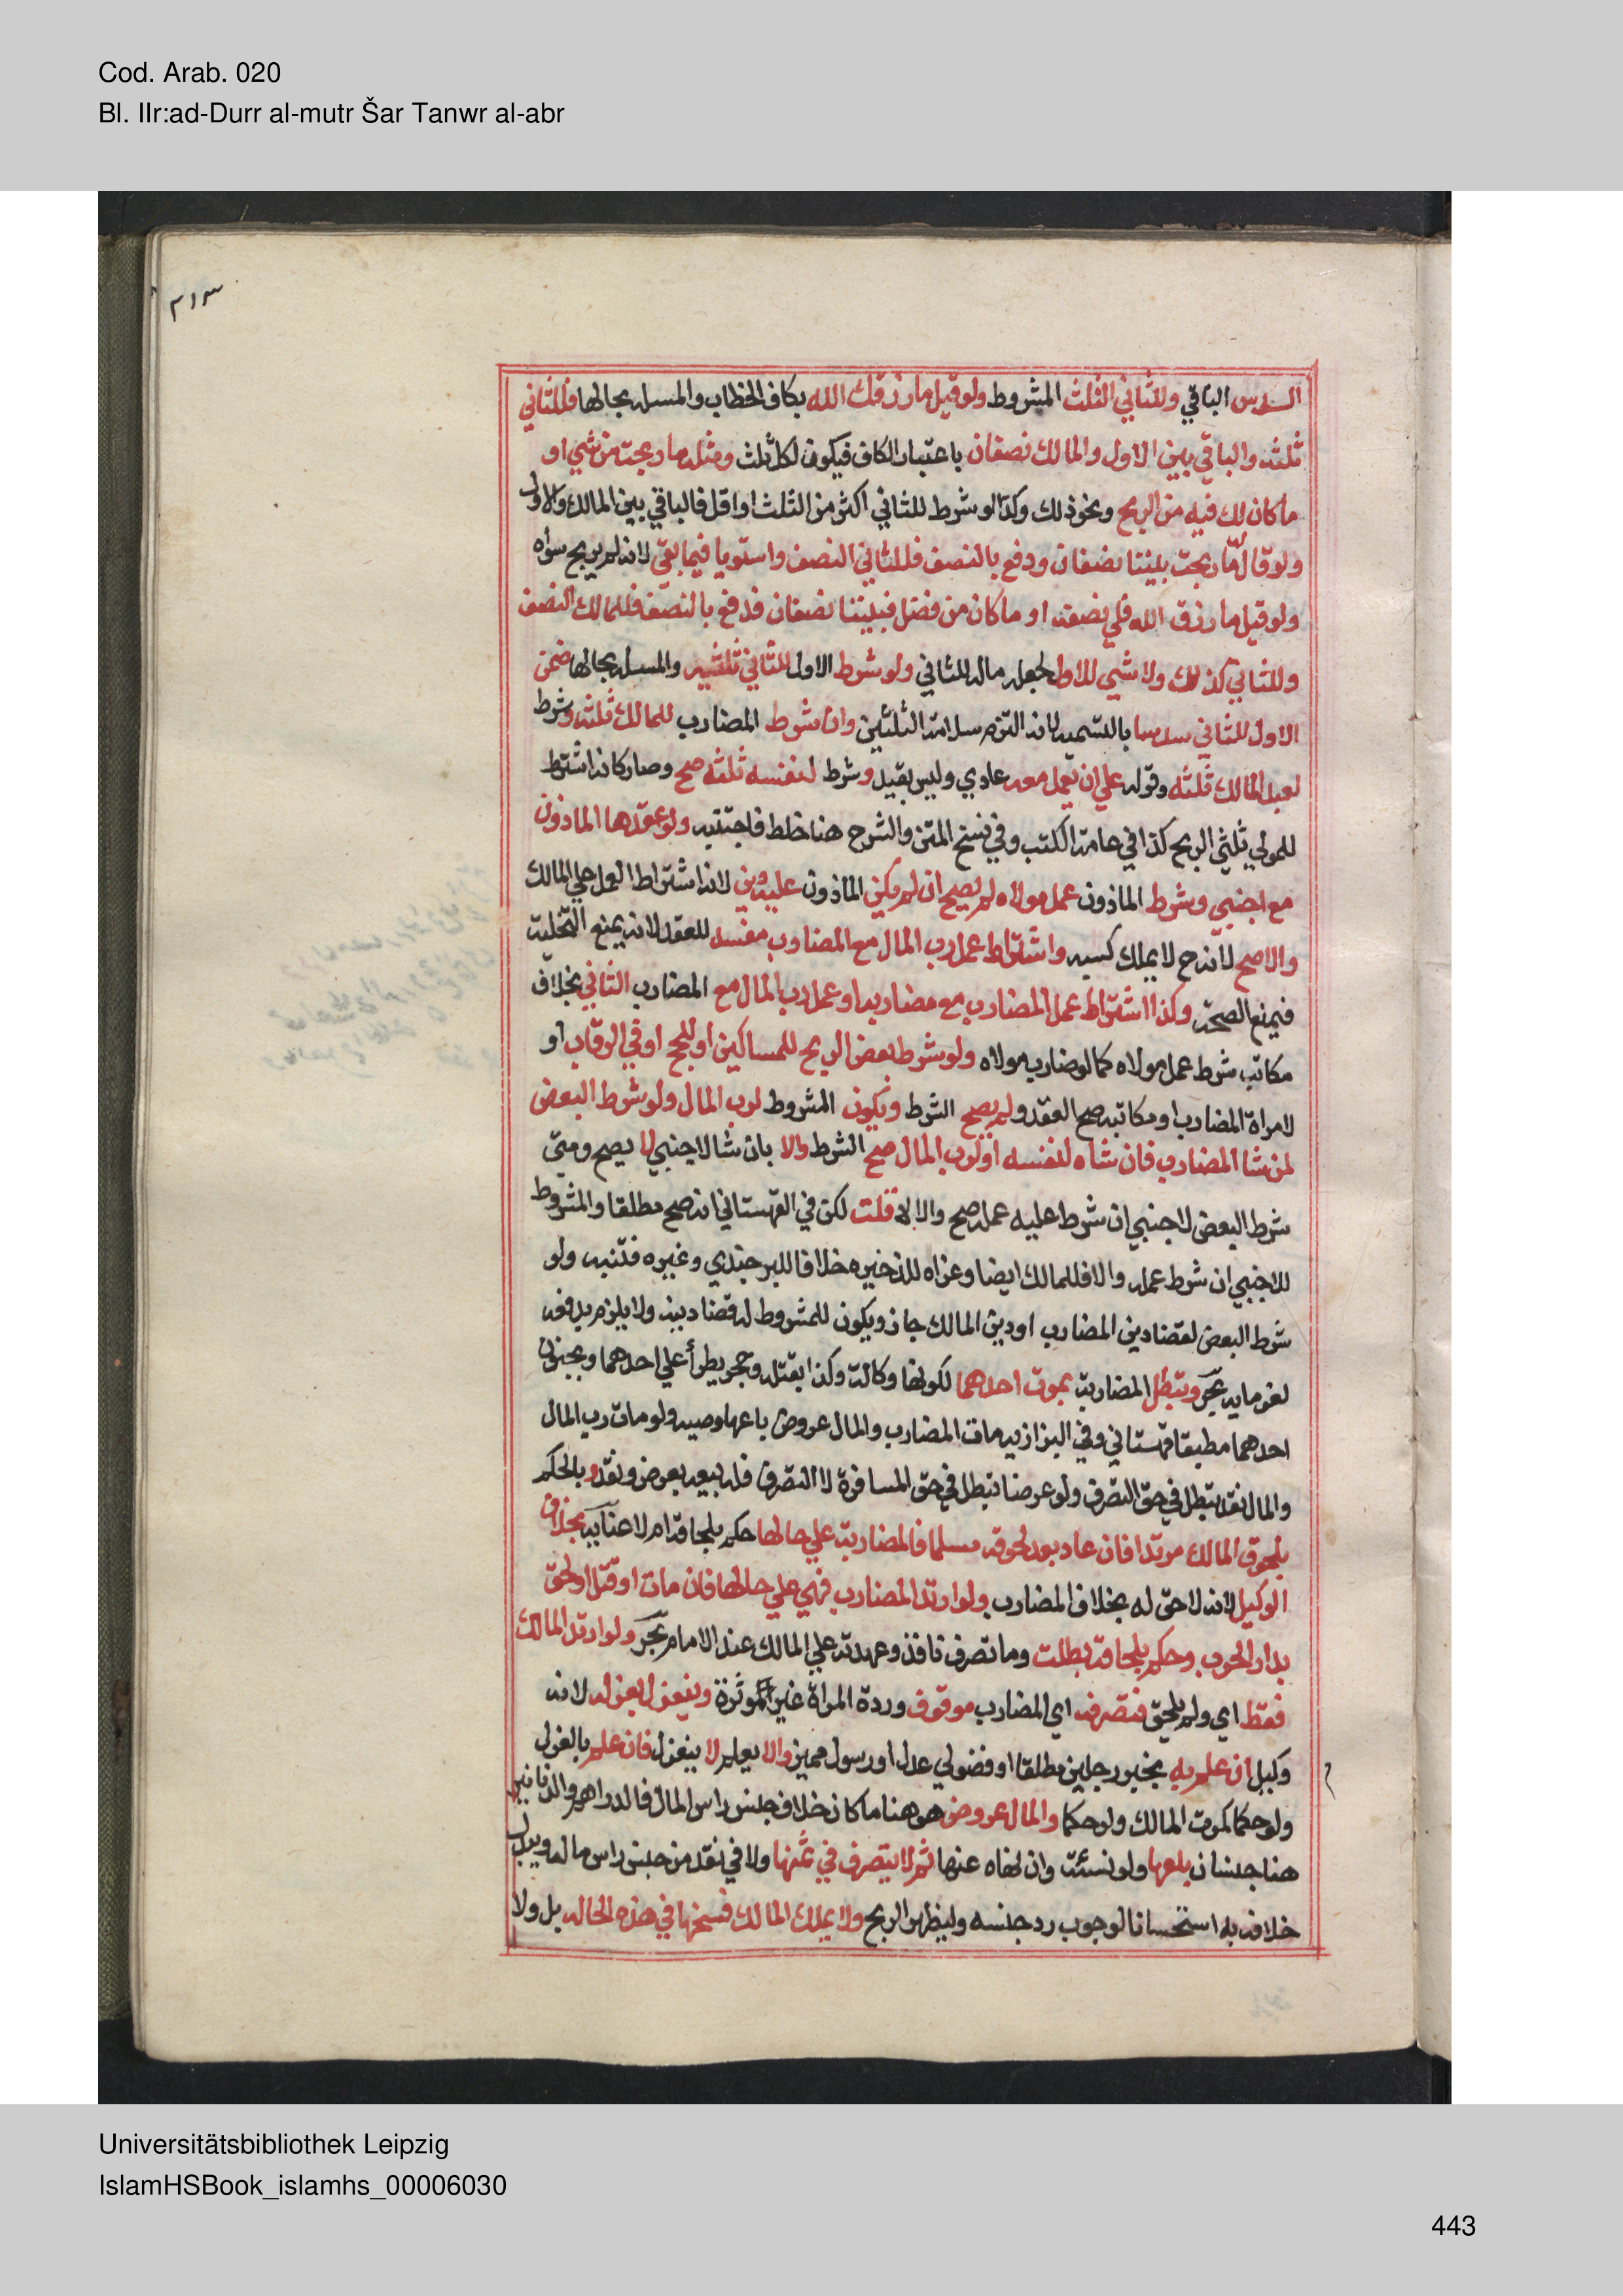 Cod. Arab. 020
Bl. IIr:ad-Durr al-mutr Šar Tanwr al-abr
٣١٣
السدس الباقي وللثاني الثلث المشروط ولو قيل ما رزقك الله بكاف الخطاب والمسله بحالها فللثاني
ثلثه والباقي بين الاول والمالك نصفان باعتبار الكاف فيكون لكل ثلث ومثله ما ربحت من شي او
ما كان لك فيه من الربح ونحو ذلك وكذا لو شرط للثاني اكثر من الثلث او اقل فالباقي بين المالك والاول
ولو قال له ما ربحت بيننا نصفان ودفع بالنصف فللثاني النصف واستويا فيما بقي لانه لم يربح سواه
ولو قيل ما رزق الله فلي نصفه او ما كان من فضل فبيننا نصفان فدفع بالنصف فللمالك النصف
وللثاني كذلك ولا شي للاول لجعله ماله للثاني ولو شرط الاول للثاني ثلثيه والمسله بحالها ضمن
الاول للثاني سدسا بالتسميه لانه التزم سلامة الثلثين وان شرط المضارب للمالك ثلثه وشرط
لعبد المالك ثلثه وقوله علي ان يعمل معه عادي وليس بقيد وشرط لنفسه ثلثه صح وصار كانه اشترط
للمولي ثلثي الربح كذا في عامة الكتب وفي نسخ المتن والشرح هنا خلط فاجتنبه ولو عقدها الماذون
مع اجنبي وشرط الماذون عمل مولاه لم يصح ان لم يكن الماذون عليه دين لانه اشتراط العمل علي المالك
والا صح لانه ح لا يملك كسبه واشتراط عمل رب المال مع المضارب مفسد للعقد لانه يمنع التخلية
فيمنع الصحة وكذا اشتراط عمل المضارب مع مضاربه او عمل رب المال مع المضارب الثاني بخلاف
مكاتب شرط عمل مولاه كما لو ضارب مولاه ولو شرط بعض الربح للمساكين او للحج او في الرقاب او
لامراة المضارب او مكاتبه صح العقد ولم يصح الشرط ويكون المشروط لرب المال ولو شرط البعض
لمن شا المضارب فان شاه لنفسه او لرب المال صح الشرط والا بان شا لاجنبي لا يصح ومتي
شرط البعض لاجنبي ان شرط عليه عمله صح والا لا قلت لكن في القهستاني انه صح مطلقا والمشروط
للاجنبي ان شرط عمله والا فللمالك ايضا وعزاه للذخيره خلافا للبرجندي وغيره فتنبه ولو
شرط البعض لقضا دين المضارب او دين المالك جاز ويكون للمشروط له قضا دينه ولا يلزم بدفعه
لغرمايه بحر وتبطل المضاربة بموت احدهما لكونها وكالة وكذا بقتله وحجر يطرأ علي احدهما وبجنون
احدهما مطبقا قهستاني وفي البزازيه مات المضارب والمال عروض باعها وصيه ولو مات رب المال
والمال نقد تبطل في حق التصرف ولو عرضا تبطل في حق المسافرة لا التصرف فله بيعه بعرض ونقد وبالحكم
بلحوق المالك مرتدا فان عاد بعد لحوقه مسلما فالمضاربة علي حالها حكم بلحاقه ام لا عنايه بخلاف
الوكيل لانه لا حق له بخلاف المضارب ولو ارتد المضارب فهي علي حالها فان مات او قتل او لحق
بدار الحرب وحكم بلحاقه بطلت وما تصرف نافذ وعهدته علي المالك عند الامام بحر ولو ارتد المالك
فقط اي ولم يلحق فتصرفه اي المضارب موقوف وردة المراة غير مؤثرة وينعزل بعزله لانه
وكيل ان علم به بخبر رجلين مطلقا او فضولي عدل او رسول مميز والا يعلم لا ينعزل فان علم بالعزل
ولو حكما كموت المالك ولو حكما والمال عروض هو هنا ما كان خلاف جنس راس المال فالدراهم والدنانير
هنا جنسان باعها ولو نسئة وان نهاه عنها ثم لا يتصرف في ثمنها ولا في نقد من جنس راس ماله ويبدل
خلافه به استحسانا لوجوب رد جنسه وليظهر الربح ولا يملك المالك فسخها في هذه الحاله بل ولا
Universitätsbibliothek Leipzig
IslamHSBook_islamhs_00006030
443